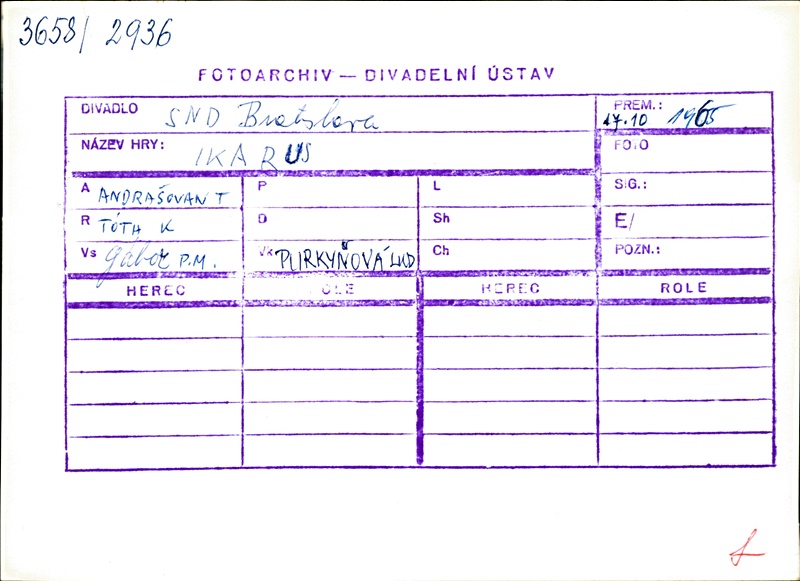 3658/ 2936
FOTOARCHIV — DIVADELNÍ ÚSTAV
DIVADLO SND Bratislava
PREM.: 17.10 1965
NÁZEV HRY: IKARUS
FOTO
A ANDRAŠOVAN T
P
L
SIG.:
R TÓTH K
D
Sh
E/
Vs Gábor P.M.
Vk PURKYŇOVÁ LUD
Ch
POZN.:
HEREC ROLE HEREC ROLE